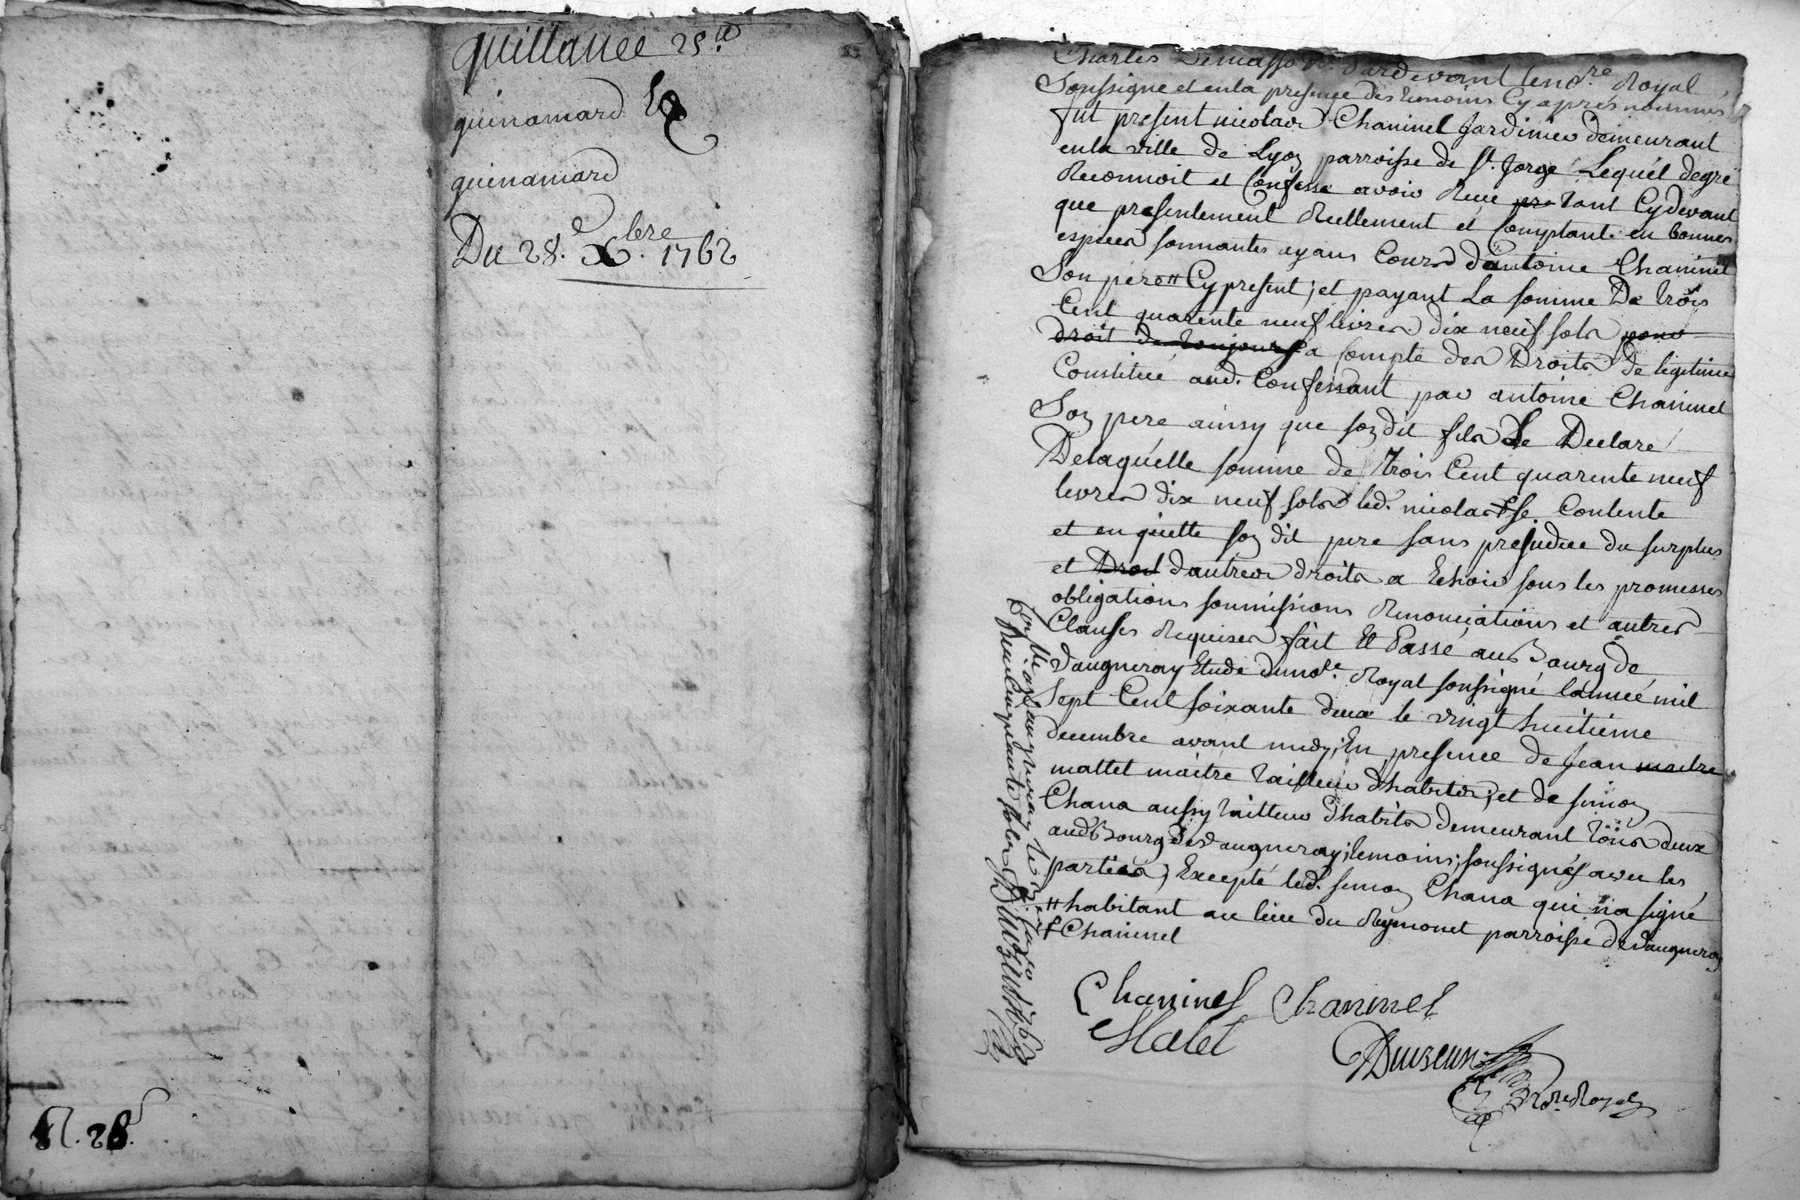 quittance 25.ᵗᵉ
guinamard
guinamard
Du 28.ᵉ Xbre. 1762
N. 28.
Pardevant le no.re Royal
Soussigne et en la presence des temoins Cy apres nommés
fut present nicolas Chaninel Jardinier demeurant
en la ville de Lyon parroisse de St. Jorge Lequel degré
Reconnoit et Confesse avoir Reçue tant Cy devant
que presentement Reellement et Comptant en bonnes
especes sonnantes ayans Cours d'antoine Chaninel
Son pere # Cy present ; et payant La somme De trois
Cent quarente neuf livres dix neuf sols pour
droit de toujours a Compte des Droits de legitime
Constitué aud. Confessant par antoine Chaninel
Son pere ainsy que son dit fils Le Declare
Delaquelle somme de trois Cent quarente neuf
livres dix neuf sols led. nicolas se Contente
et en quitte son dit pere sans prejudice du surplus
et Droit d'autres droits a Echoir sous les promesses
obligations soumissions Renonciations et autres
Clauses Requises fait Et Passé au Bourg de
Vaugneray Etude du no.re Royal soussigné lannée mil
Sept Cent soixante deux le vingt huitième
decembre avant midy ; En presence de Jean maitre
mattet maitre tailleur d'habits ; et de simon
Chana aussy tailleur d'habits demeurant tous deux
aud. Bourg de Vaugneray ; temoins ; soussignés avec les
parties ; Excepté led. simon Chana qui n'a signé
# habitant au lieu du Reymonet parroisse de Vaugneray
Chaninel
Chaninel Chaninel
Matet
no.re Royal
Controllé a Vaugneray le